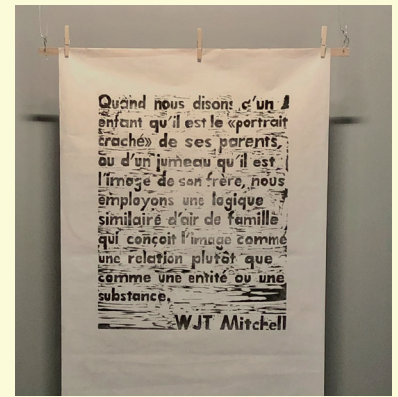 Quand nous disons d'un
enfant qu'il est le «portrait
craché» de ses parents,
ou d'un jumeau qu'il est
l'image de son frère, nous
employons une logique
similaire d'air de famille
qui conçoit l'image comme
une relation plutôt que
comme une entité ou une
substance.
WJT Mitchell